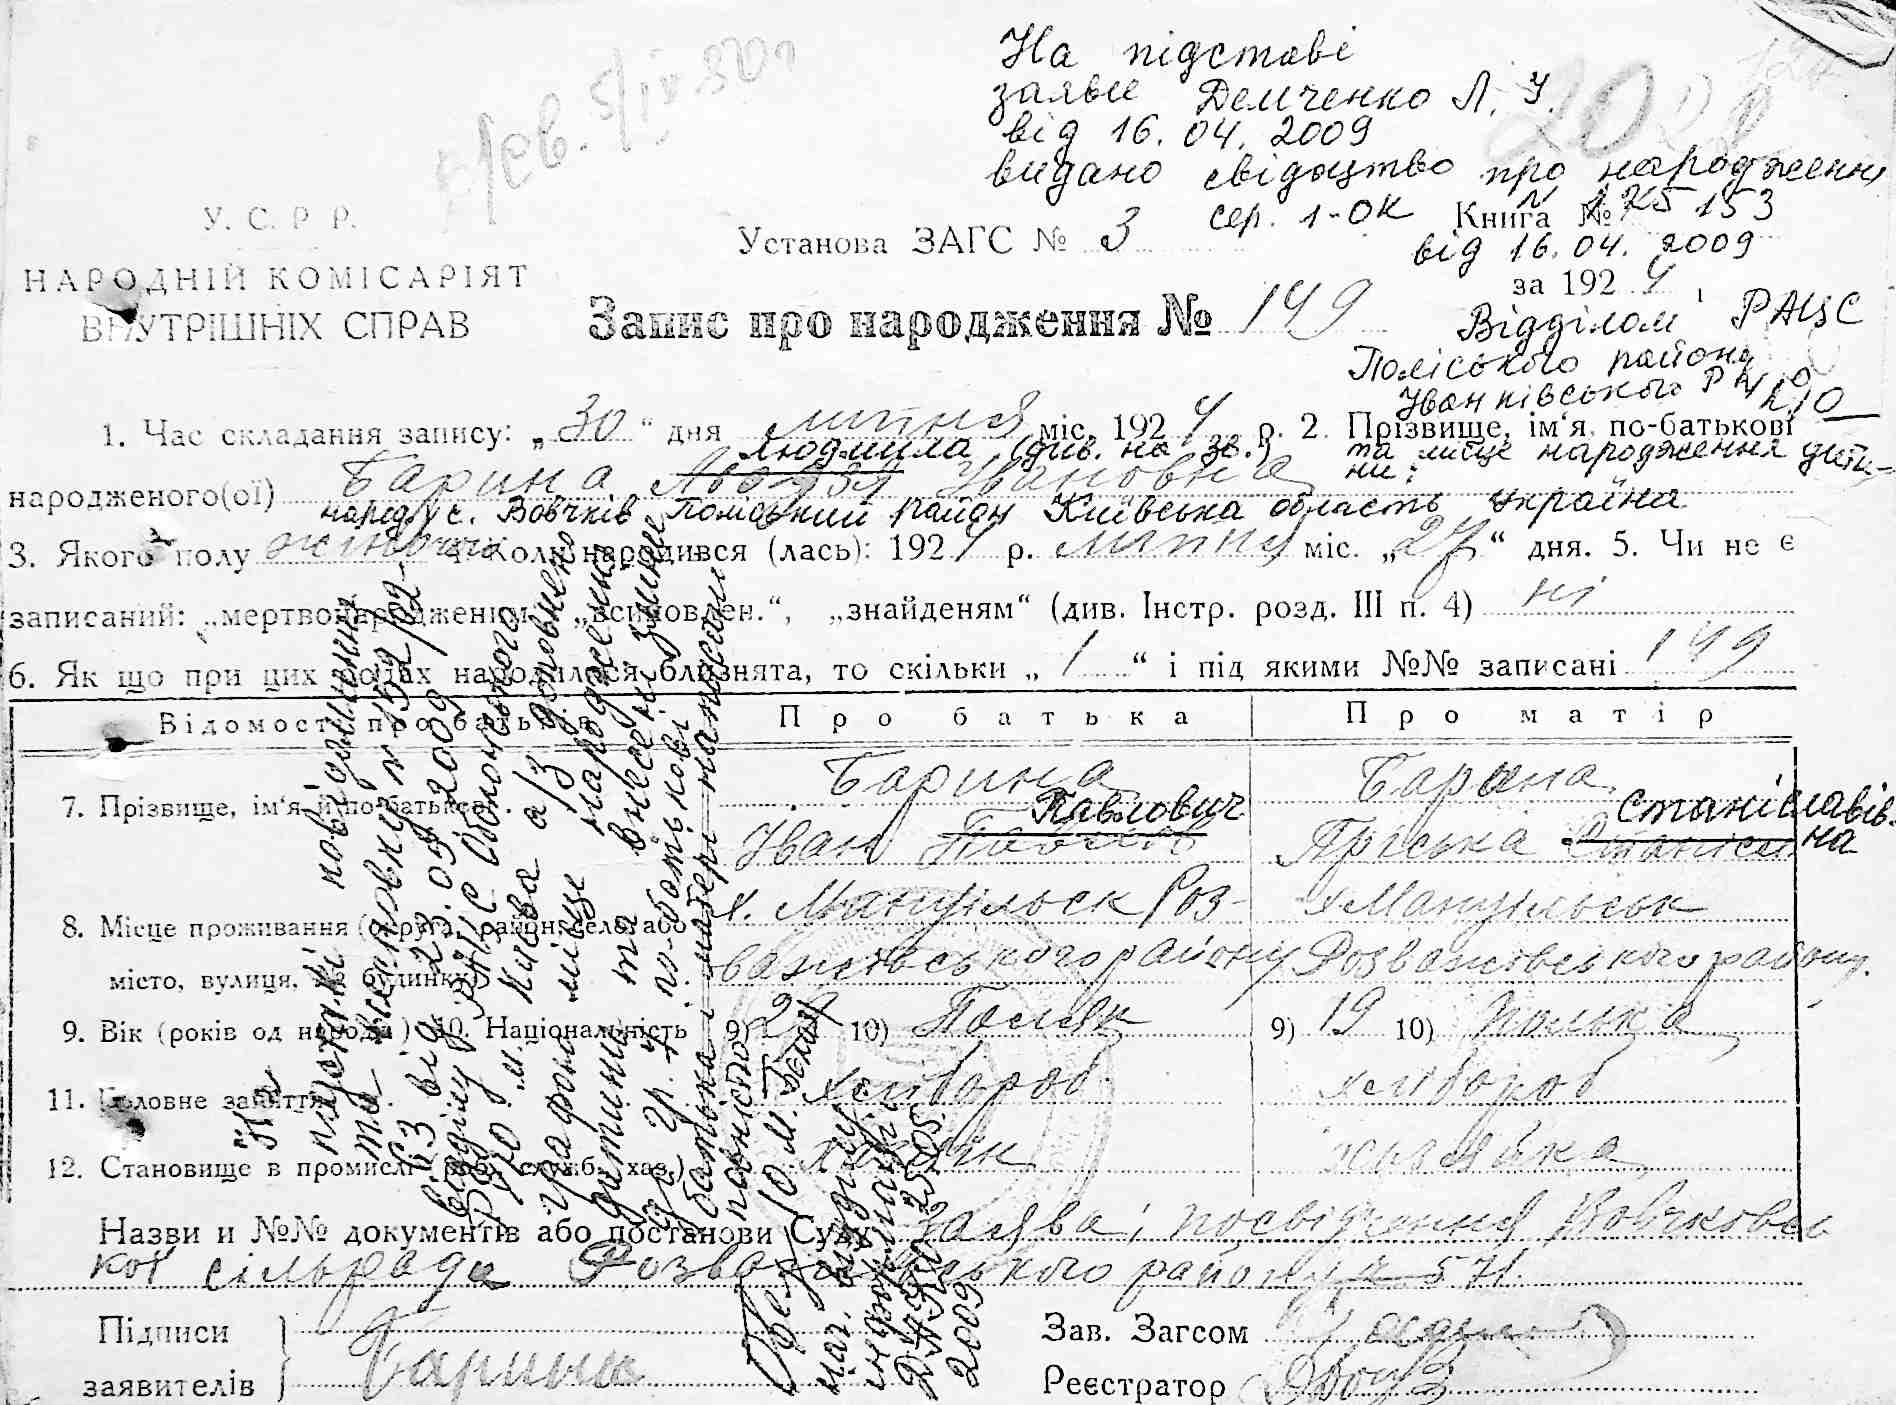 На підставі
заяви Демченко Л. У.
від 16. 04. 2009
видано свідоцтво про народження
сер. 1-ОК № 125 153
від 16. 04. 2009
Відділом РАЦС
Поліського району
Іванківського
У. С. Р. Р.
НАРОДНІЙ КОМІСАРІЯТ
ВНУТРІШНІХ СПРАВ
Установа ЗАГС № 3 Книга №
за 192 4
Запис про народження № 149
1. Час складання запису: „ 30 “ дня липня міс. 192 4 р. 2. Прізвище, ім‘я, по-батькові
Людмила (див. на зв.) та місце народження дити-
ни:
народженого(ої) Барина Івановна
народ. у с. Вовчків Поліський район Київська область Україна
3. Якого полу жіночої 4. Коли народився (лась): 192 4 р. липня міс. „ 27 “ дня. 5. Чи не є
записаний: „мертвонародженим“, „всиновлен.“, „знайденям“ (див. Інстр. розд. III п. 4) ні
6. Як що при цих родах народилися близнята, то скільки „ 1 “ і під якими №№ записані 149
Відомості про батьків Про батька Про матір
7. Прізвище, ім‘я й по-батькові Барина Барина
Павлович Станіславів-
Іван Пріська на
8. Місце проживання (округа, район, село, або х. Мануільск Роз- х Мануільськ
місто, вулиця, № будинку) важівського району Розважівського району.
9. Вік (років од народж.) 10. Національність 9) 24 10) Поляк 9) 19 10) Полька
11. Головне заняття хлібороб хлібороб
12. Становище в промислі (роб., служб., хаз.) хазяїн хазяйка
Назви и №№ документів або постанови Суду Заява, посвідчення Вовчковсь
кої сільради Розважівського району № 571.
Підписи
заявителів Барина
Зав. Загсом
Реєстратор
На підставі повідомлення
та висновку № 132/02-
63 від 23. 03 2009
відділу РАЦС Оболонського
РУЮ м. Києва а/з доповнено
графою місце народження
дитини та внесені зміни
у гр. 7 по-батькові
батька і матері написати
повністю
2009